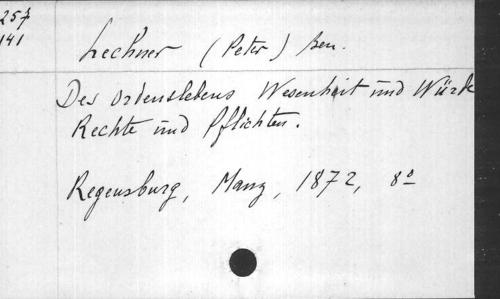 257
141
Lechner (Peter) Ben.
Des Ordenslebens Wesenheit und Würde
Rechte und Pflichten.
Regensburg, Manz, 1872, 8°